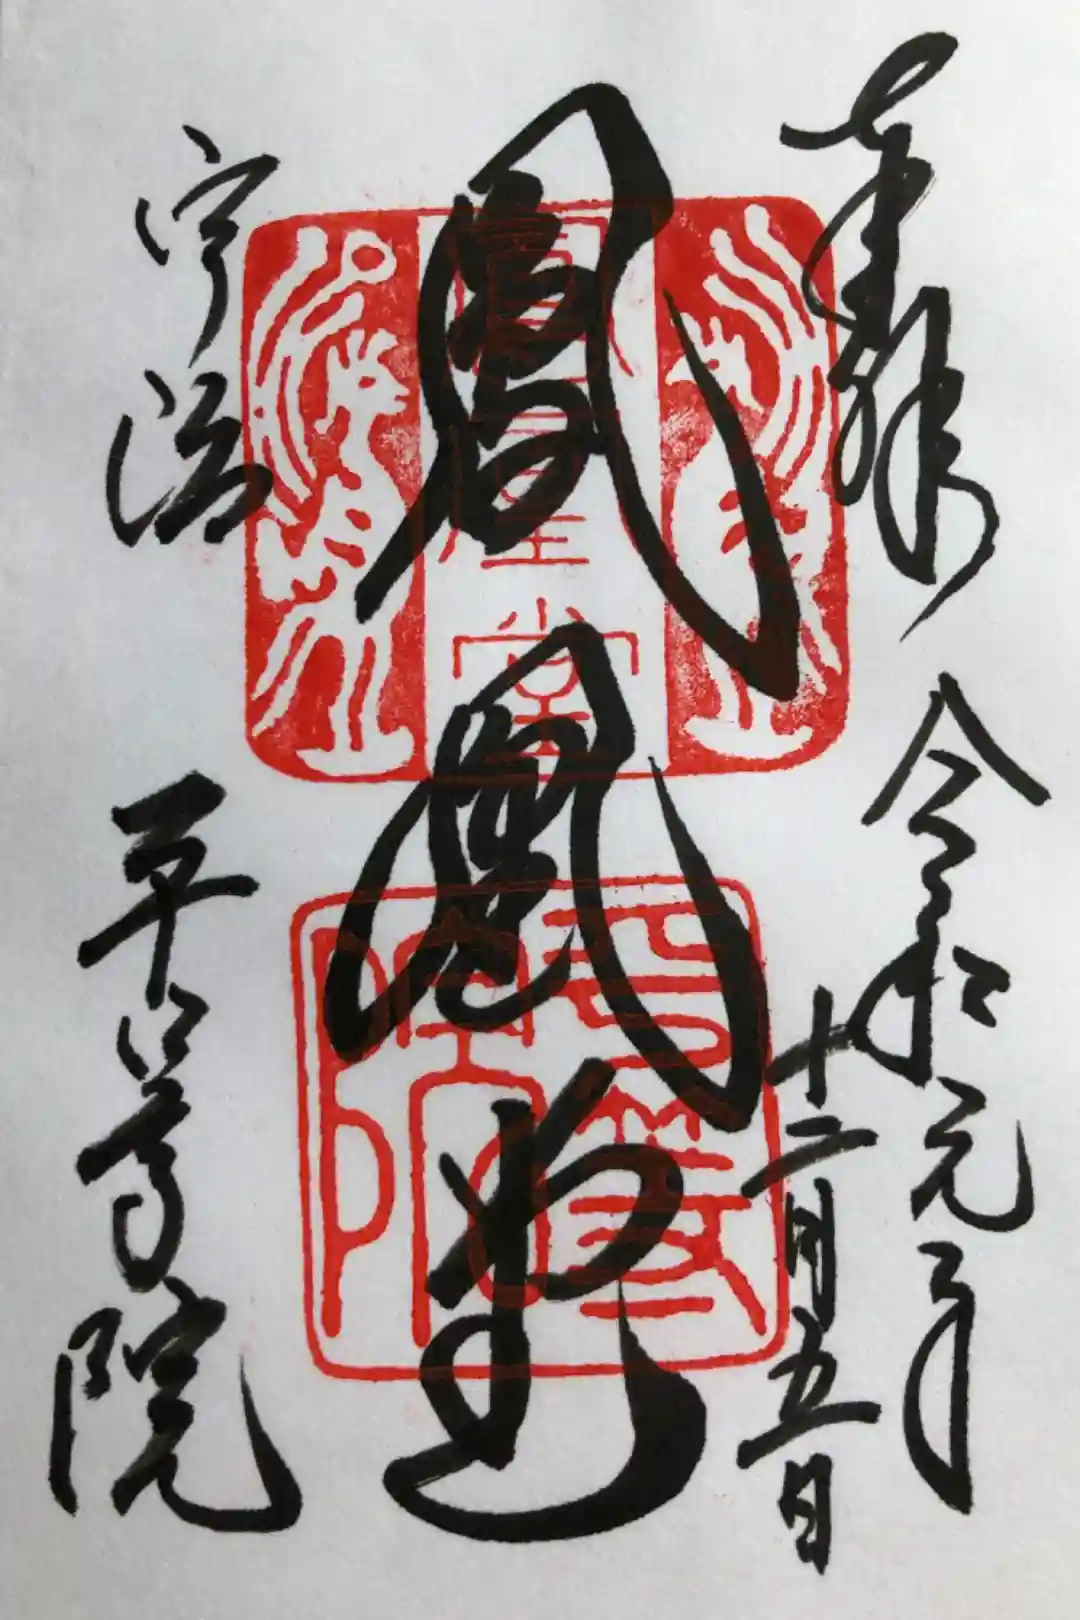 奉拝
令和元年
十二月五日
鳳凰堂
宇治
平等院
堂
平等院